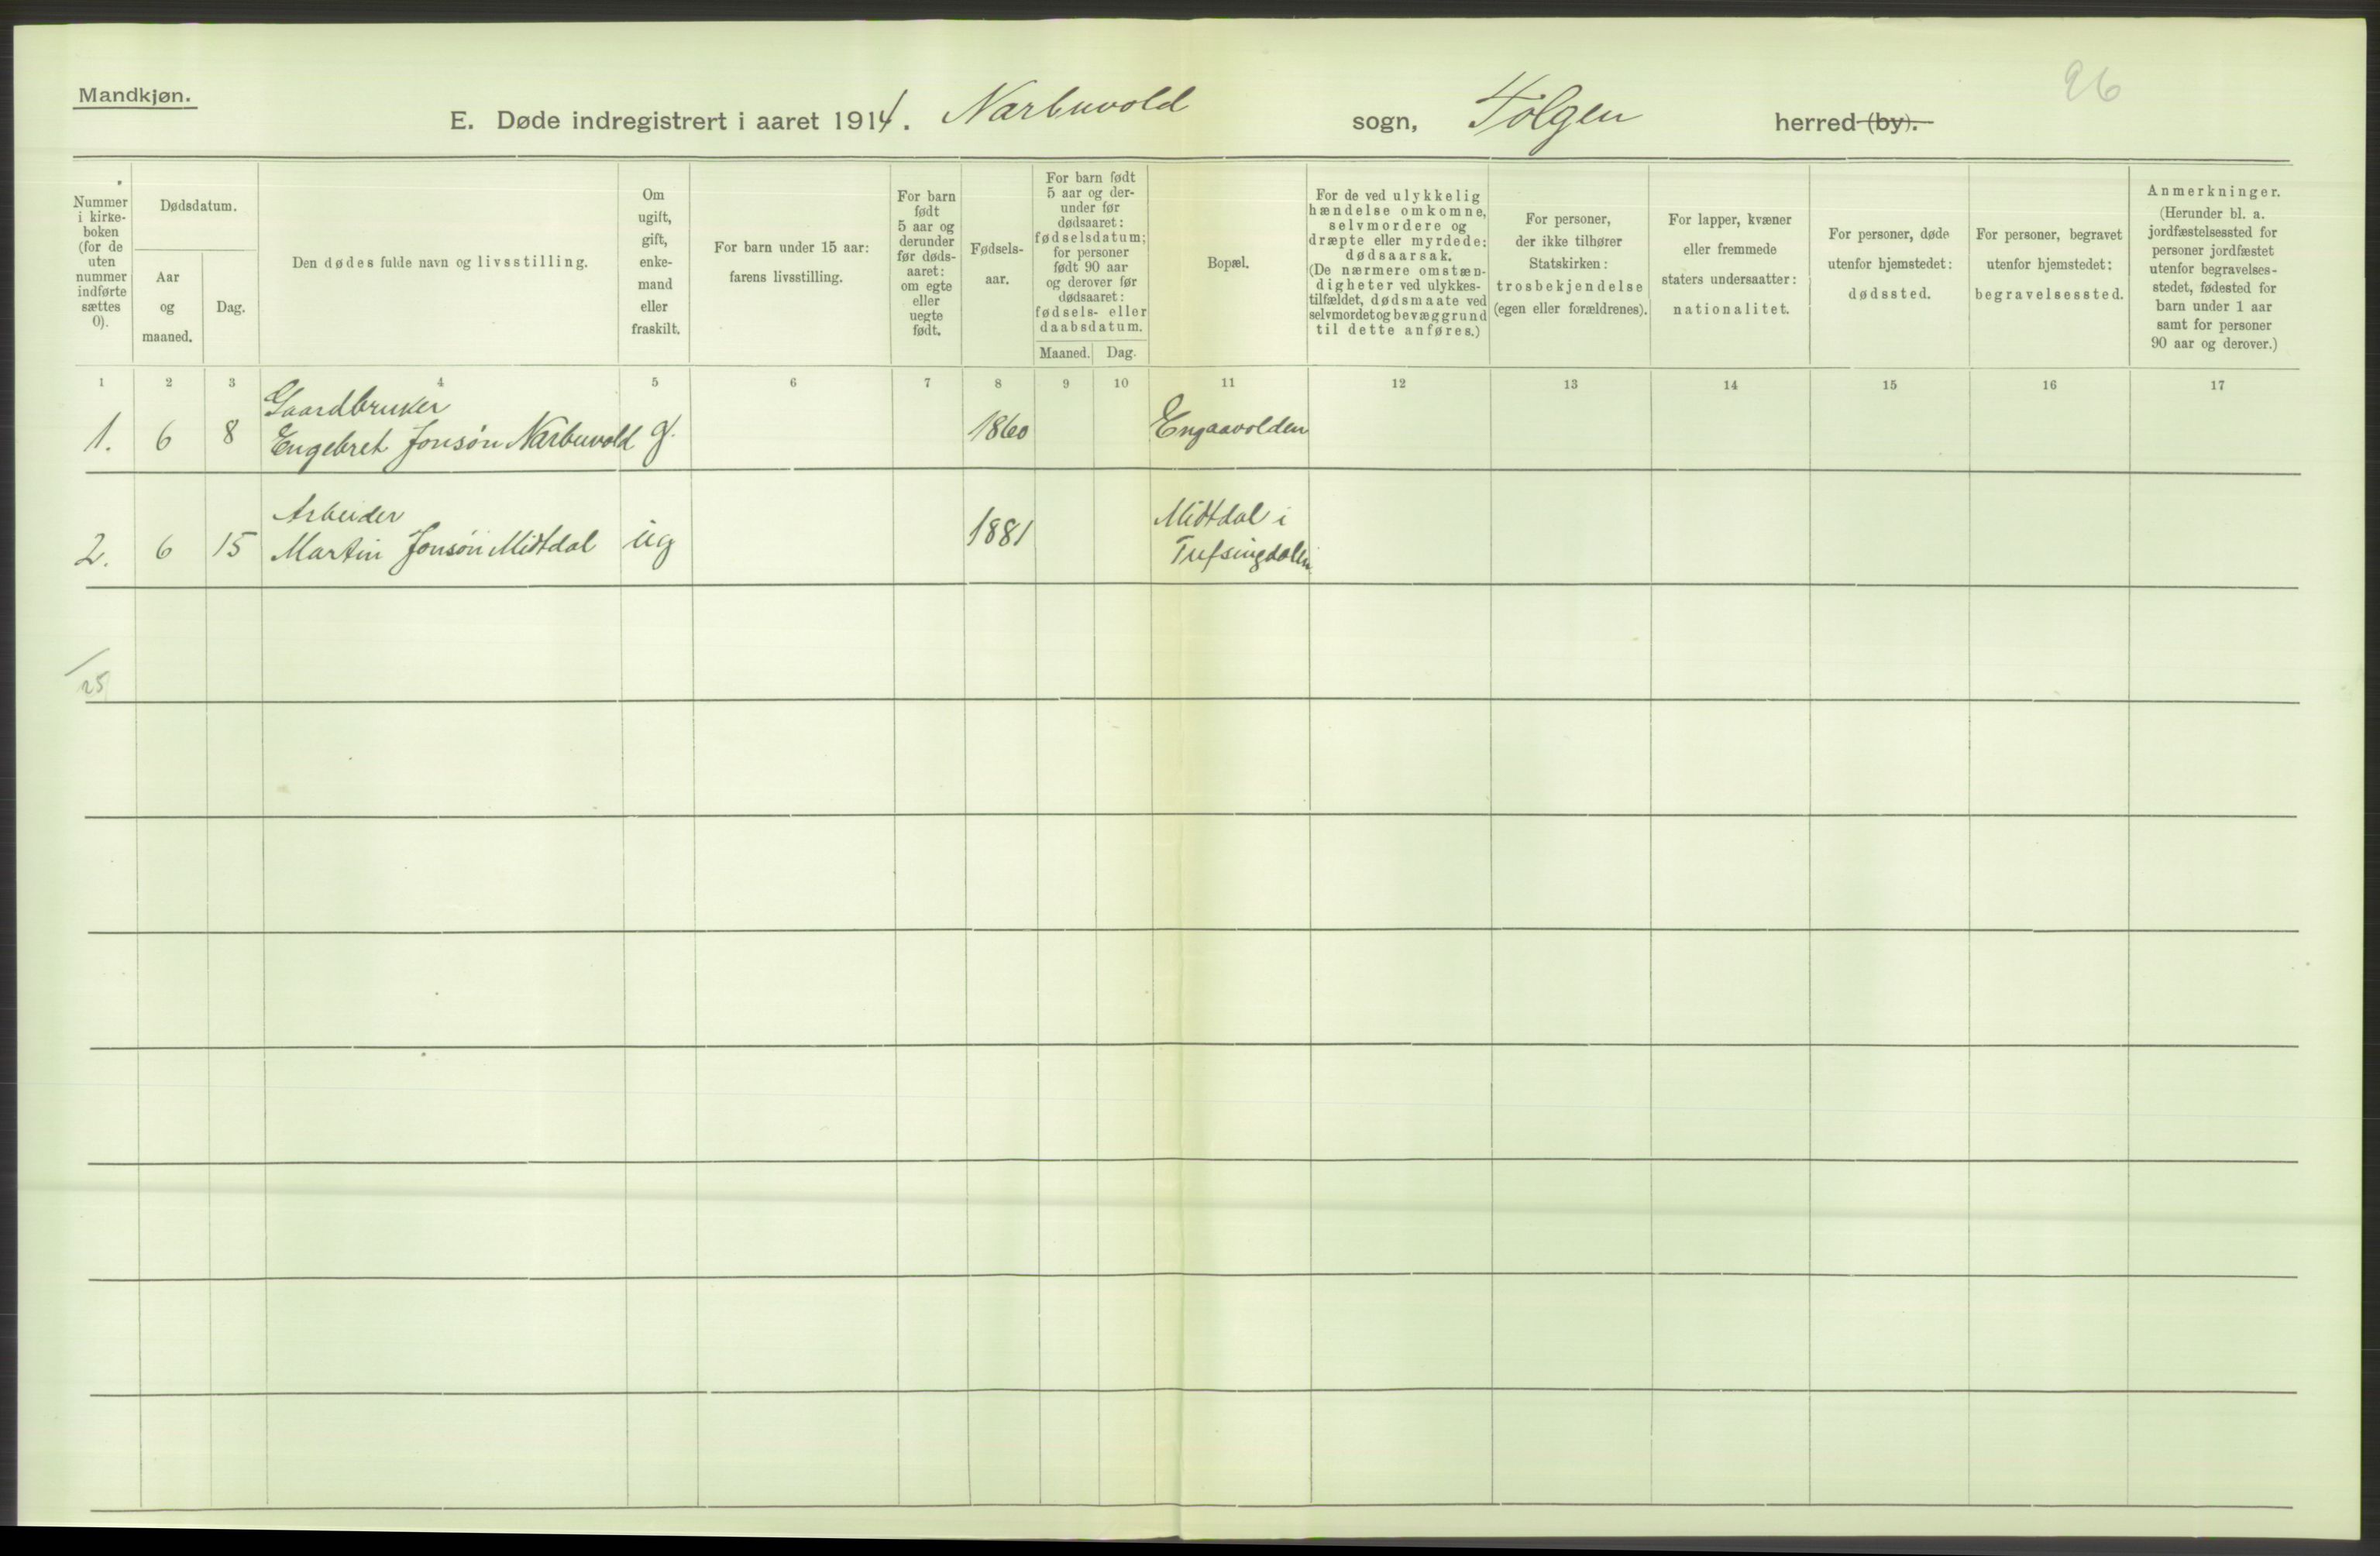 Mandkjøn.
96
E. Døde indregistrert i aaret 1914. Narbuvold sogn, Tolgen herred (by).
Nummer i kirkeboken (for de uten nummer indførte sættes 0).
Dødsdatum.
Aar og maaned.
Dag.
Den dødes fulde navn og livsstilling.
Om ugift, gift, enkemand eller fraskilt.
For barn under 15 aar: farens livsstilling.
For barn født 5 aar og derunder før dødsaaret: om egte eller uegte født.
Fødselsaar.
For barn født 5 aar og derunder før dødsaaret: fødselsdatum; for personer født 90 aar og derover før dødsaaret: fødsels- eller daabsdatum.
Maaned. Dag.
Bopæl.
For de ved ulykkelig hændelse omkomne, selvmordere og dræpte eller myrdede: dødsaarsak. (De nærmere omstændigheter ved ulykkestilfældet, dødsmaate ved selvmordet og bevæggrund til dette anføres.)
For personer, der ikke tilhører Statskirken: trosbekjendelse (egen eller forældrenes).
For lapper, kvæner eller fremmede staters undersaatter: nationalitet.
For personer, døde utenfor hjemstedet: dødssted.
For personer, begravet utenfor hjemstedet: begravelsessted.
Anmerkninger. (Herunder bl. a. jordfæstelsessted for personer jordfæstet utenfor begravelsesstedet, fødested for barn under 1 aar samt for personer 90 aar og derover.)
1 2 3 4 5 6 7 8 9 10 11 12 13 14 15 16 17
Gaardbruker
1. 6 8 Engebret Jonsøn Narbuvold g. 1860 Engaavolden
Arbeider Midtdal i
2. 6 15 Martin Jonsøn Midtdal ug 1881 Tufsingdalen
/25